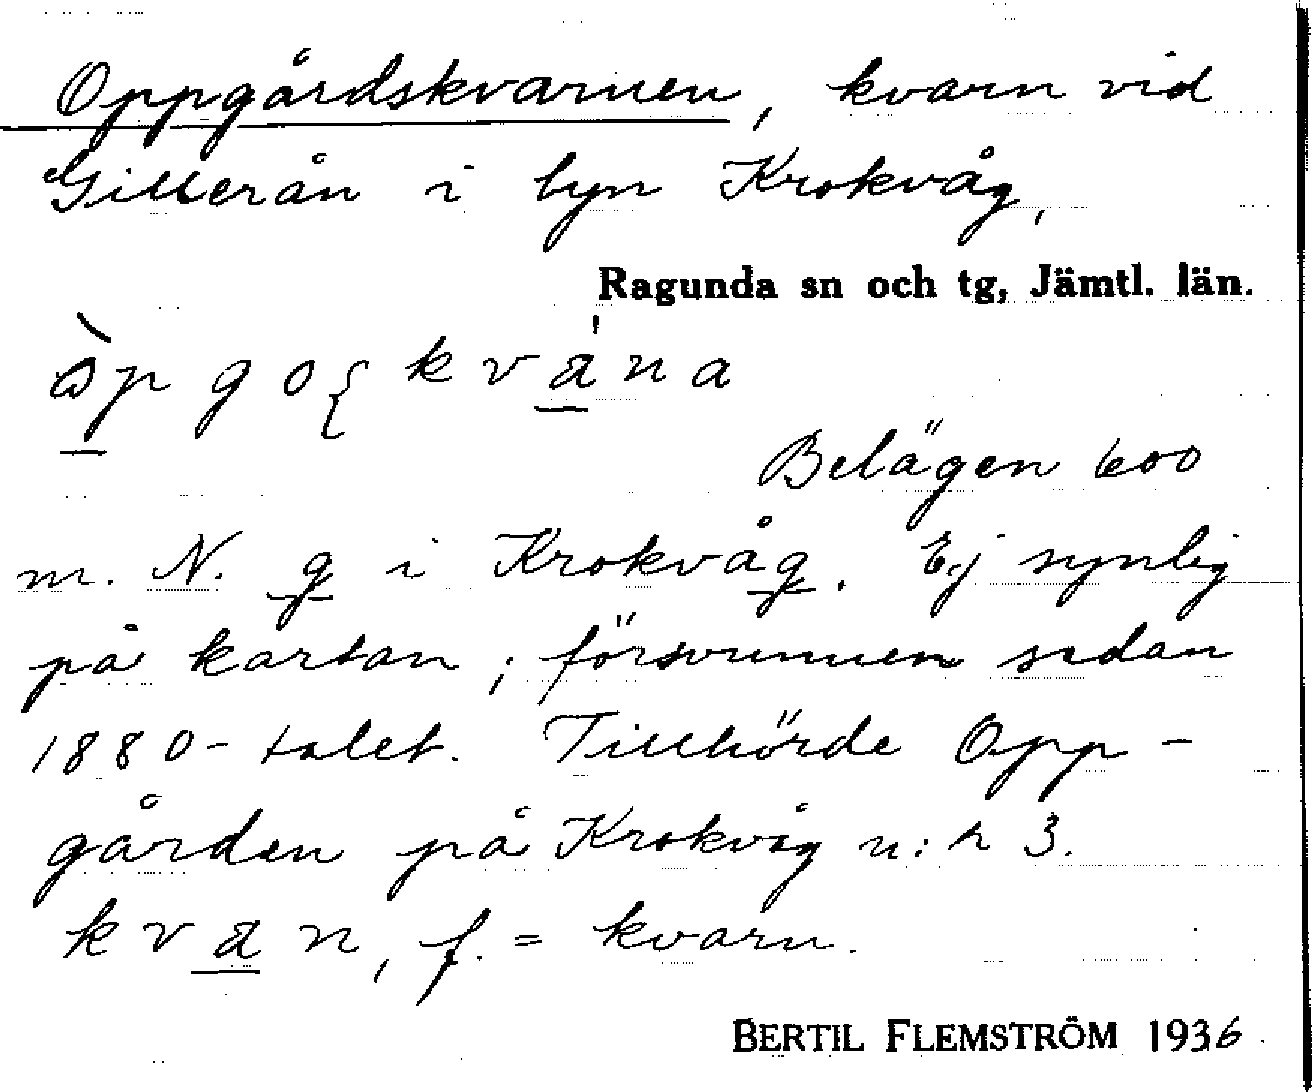 Oppgårdskvarnen, kvarn vid
Gillerån i byn Krokvåg,
Ragunda sn och tg, Jämtl. län.
kvana
Belägen 600
m. N. g i Krokvåg. Ej synlig
på kartan; försvunnen sedan
1880-talet. Tillhörde Opp-
gården på Krokvåg n:r 3.
kvan, f. = kvarn.
BERTIL FLEMSTRÖM 1936